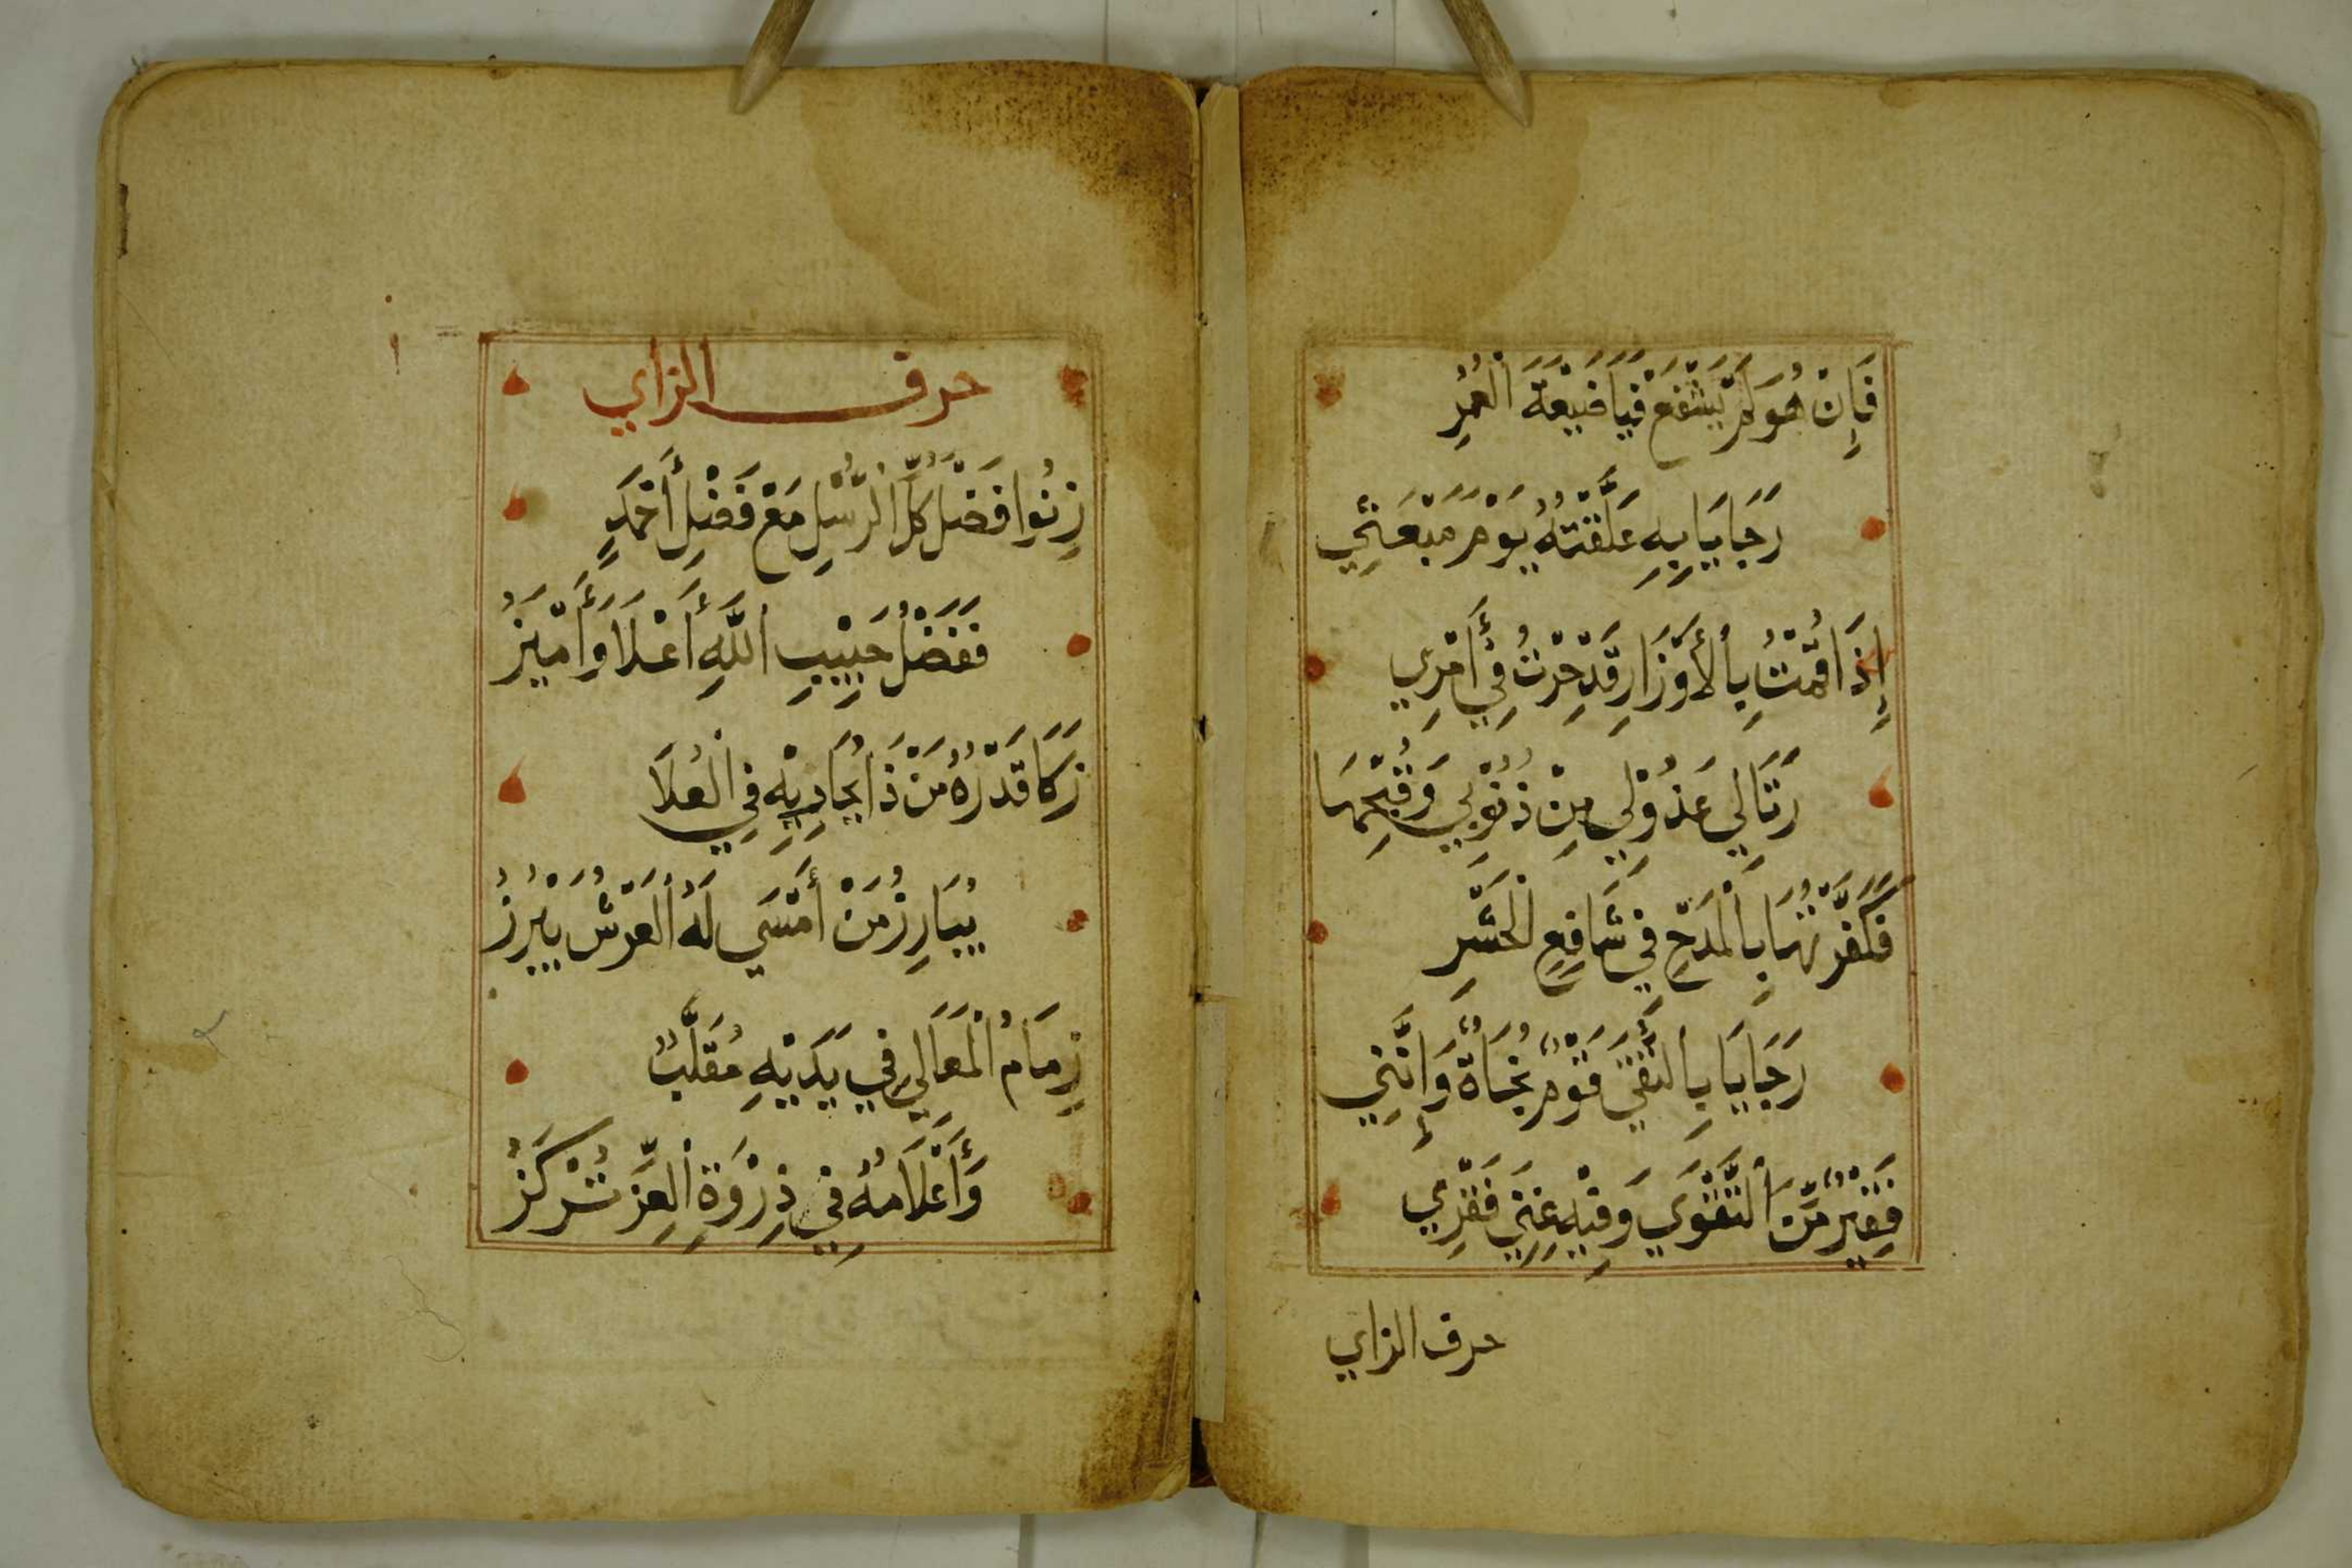 فَإِنْ هُوَ لَمْ يَشْفَعْ فَيَا ضَيْعَةَ الْعُمْرِ
رَجَايَا بِهِ عَلَّقْتُهُ يَوْمَ مَبْعَثِي
إِذَا قُمْتُ بِالْأَوْزَارِ قَدْ حِرْتُ فِي أَمْرِي
رَثَا لِي عَذُولِي مِنْ ذُنُوبِي وَقُبْحِهَا
فَكَفَّرْتُهَا بِالْمَدْحِ فِي شَافِعِ الْحَشْرِ
رَجَايَا بِالتُّقَي قَوْمٌ نُجَاةٌ وَإِنَّنِي
فَقِيرٌ مِنَ التَّقْوَي وَفِيهِ غِنَي فَقْرِي
حرف الزاي
حرف الزاي
زِنُوا فَضْلَ كُلِّ الرُّسْلِ مَعْ فَضْلِ أَحْمَدٍ
فَفَضْلُ حَبِيبِ اللَّهِ أَعْلَا وَأَمْيَزُ
زَكَا قَدْرُهُ مَنْ ذَا يُحَاذِيهِ فِي الْعُلَا
يُبَارِزُ مَنْ أَمْسَي لَهُ الْعَرْشُ يَبْرُزُ
زِمَامُ الْمَعَالِي فِي يَدَيْهِ مُقَلَّبٌ
وَأَعْلَامُهُ فِي ذِرْوَةِ الْعِزِّ تُرْكَزُ